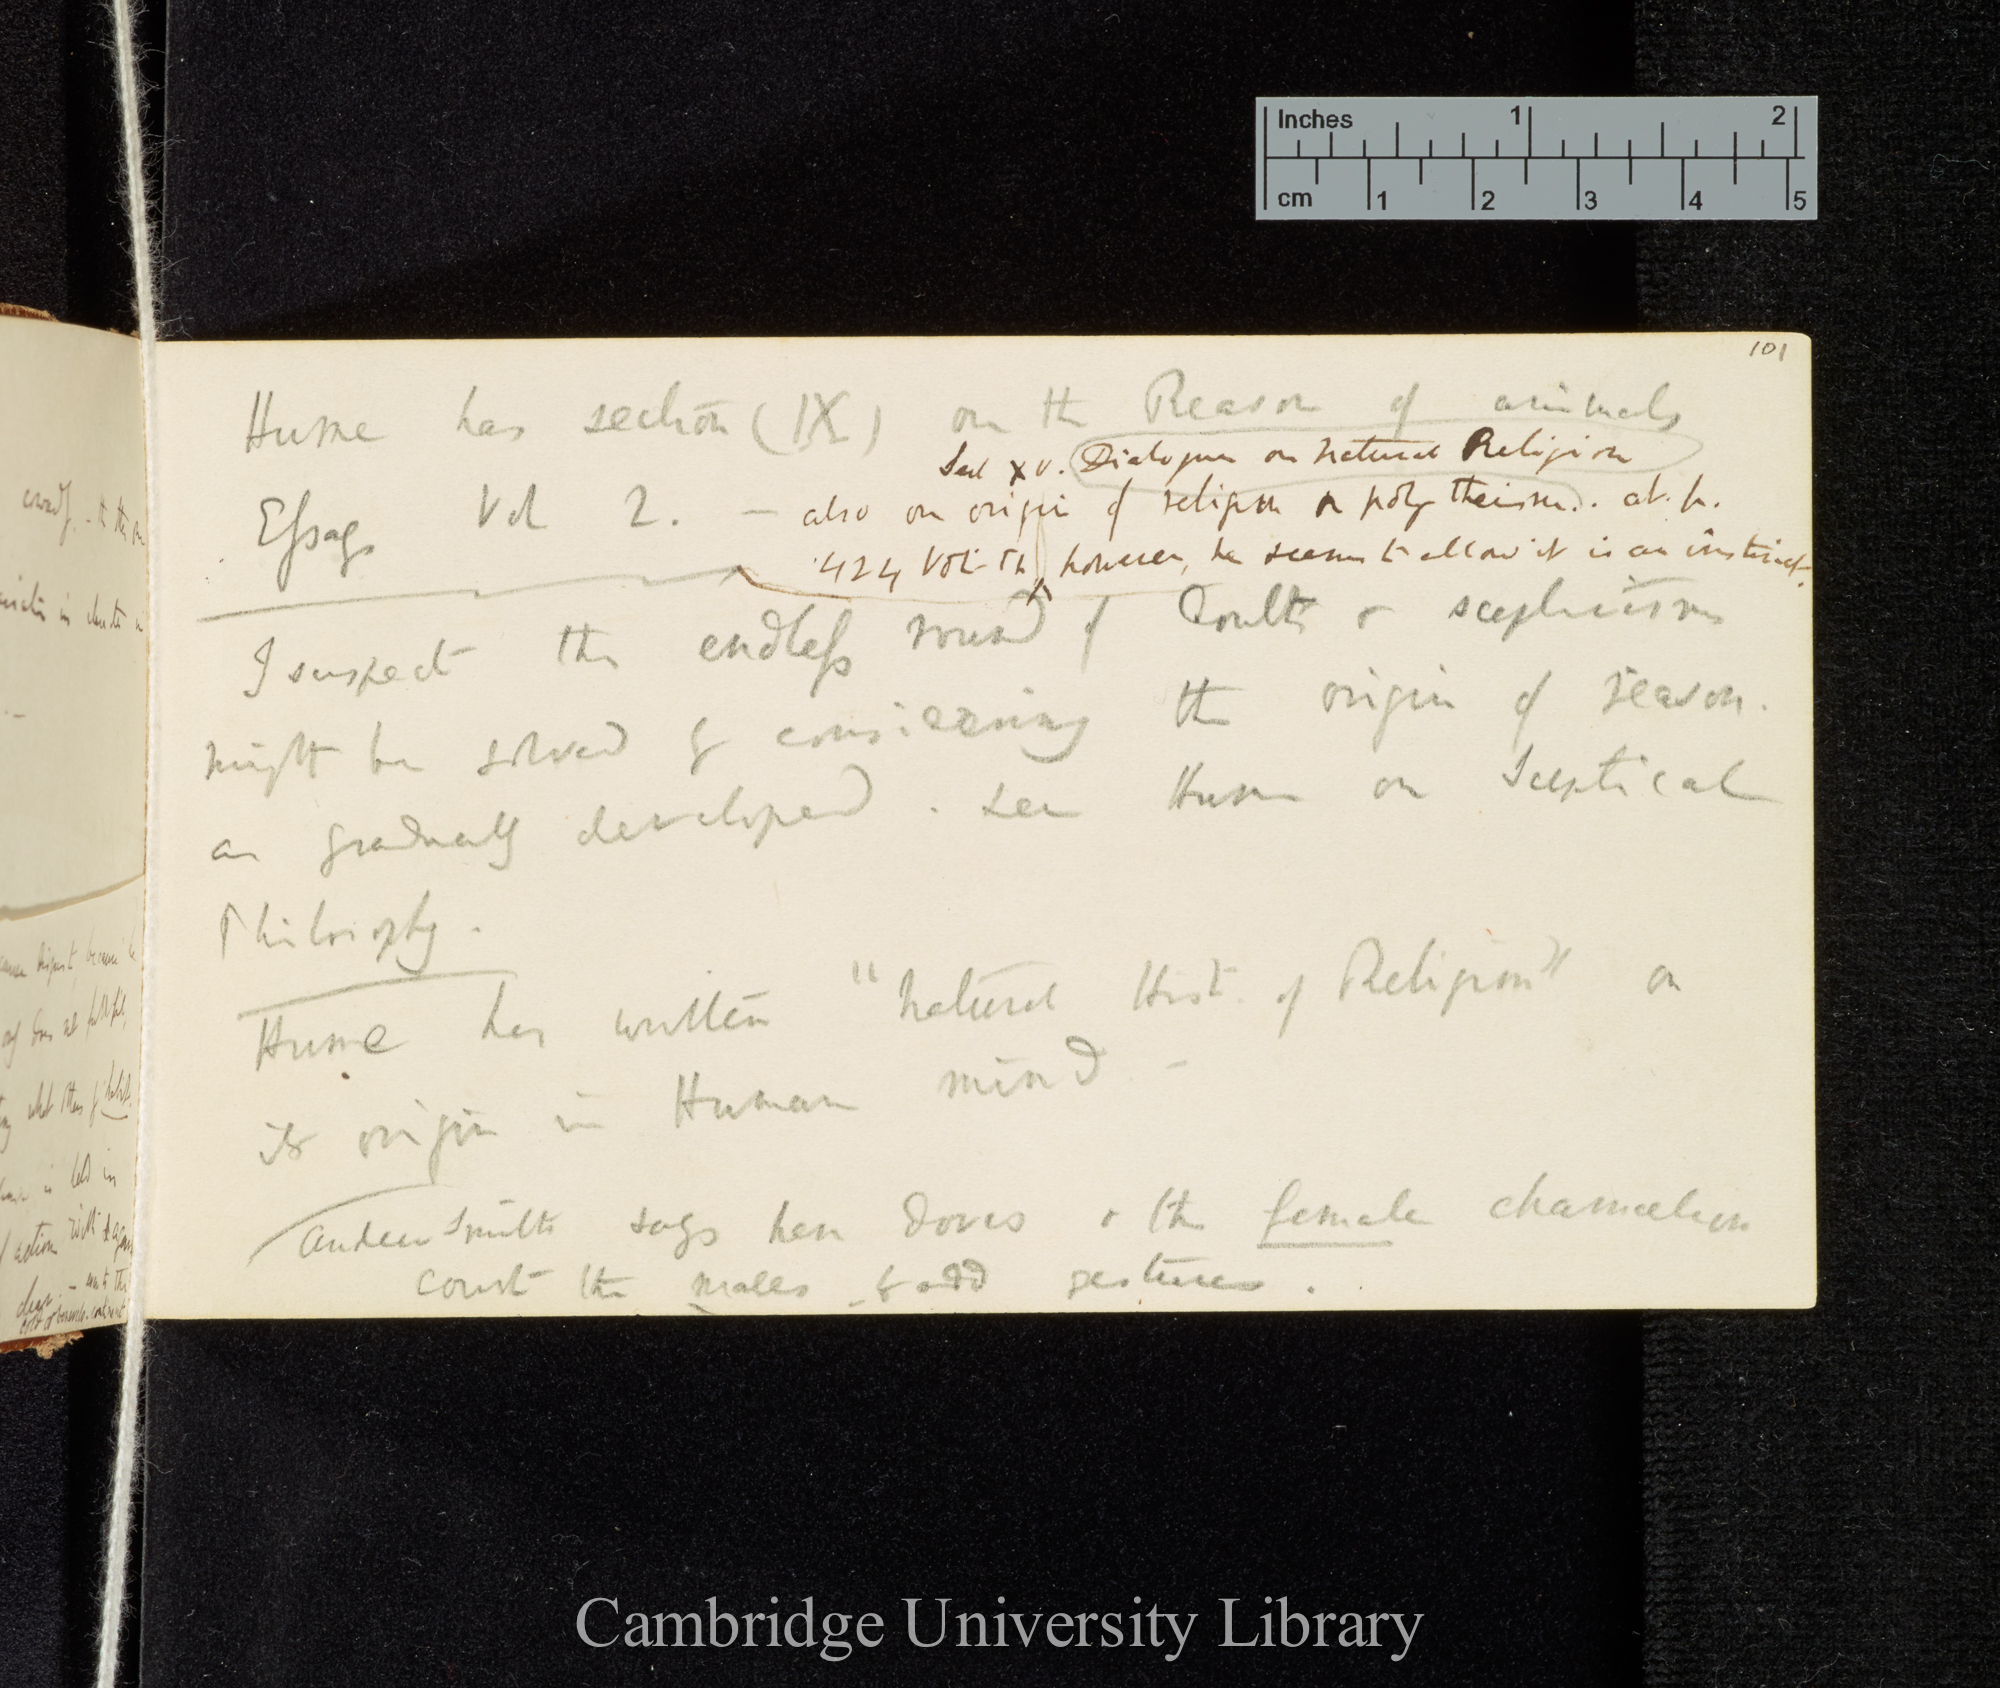 Inches 1 2
cm 1 2 3 4 5
101
Hume has section (IX) on the Reason of animals
Sect XV. Dialogues on Natural Religion
Essays Vol 2. — also on origin of religion or polytheism.. at. p.
424 Vol. II, however, he seems to allow it is an instinct.
I suspect the endless round of doubts & scepticism
might be solved by considering the origin of reason.
as gradually developed. see Hume on Sceptical
Philosophy.
Hume has written "Natural Hist. of Religion" on
its origin in Human mind —
Andrew Smith says hen doves & the female chamaeleon
court the males by odd gestures.
Cambridge University Library